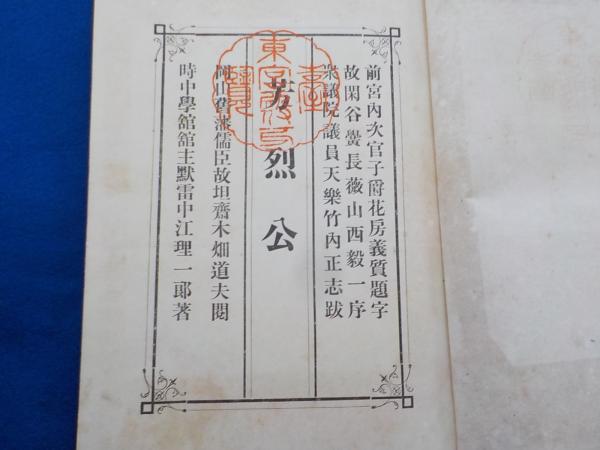 前宮內次官子爵花房義質題字
故閑谷黌長薇山西毅一序
衆議院議員天樂竹內正志跋
芳烈公
岡山舊藩儒臣故坦齋木畑道夫閱
時中學舘舘主默雷中江理一郎著